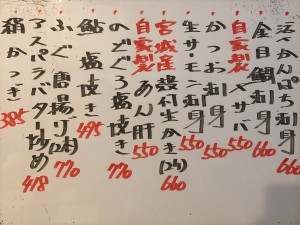 活〆かんぱち刺身 660
金目鯛刺身 660
自家製〆サバ 550
かつお刺身 550
生サーモン刺身 550
宮城産殻付生かき(2ケ) 660
自家製あん肝 550
のどぐろ塩焼き 770
鮎塩焼き 495
ふぐ唐揚げ 770
アスパラバター炒め 418
絹かつぎ 385